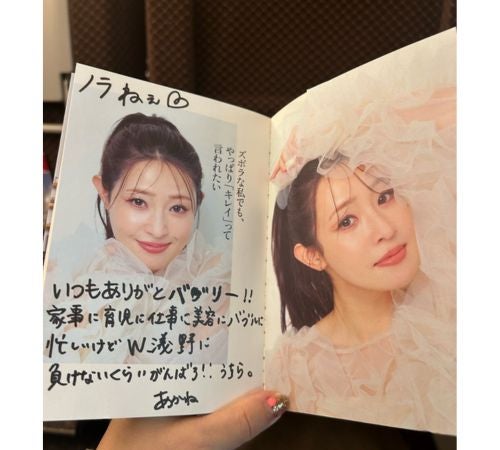 ノラねぇ♡
ズボラな私でも、
やっぱり「キレイ」って
言われたい
いつもありがとバヴリー!!
家事に育児に仕事に美容にバヴルに
忙しいけどW浅野に
負けないくらいがんばろ!! うちら。
あかね